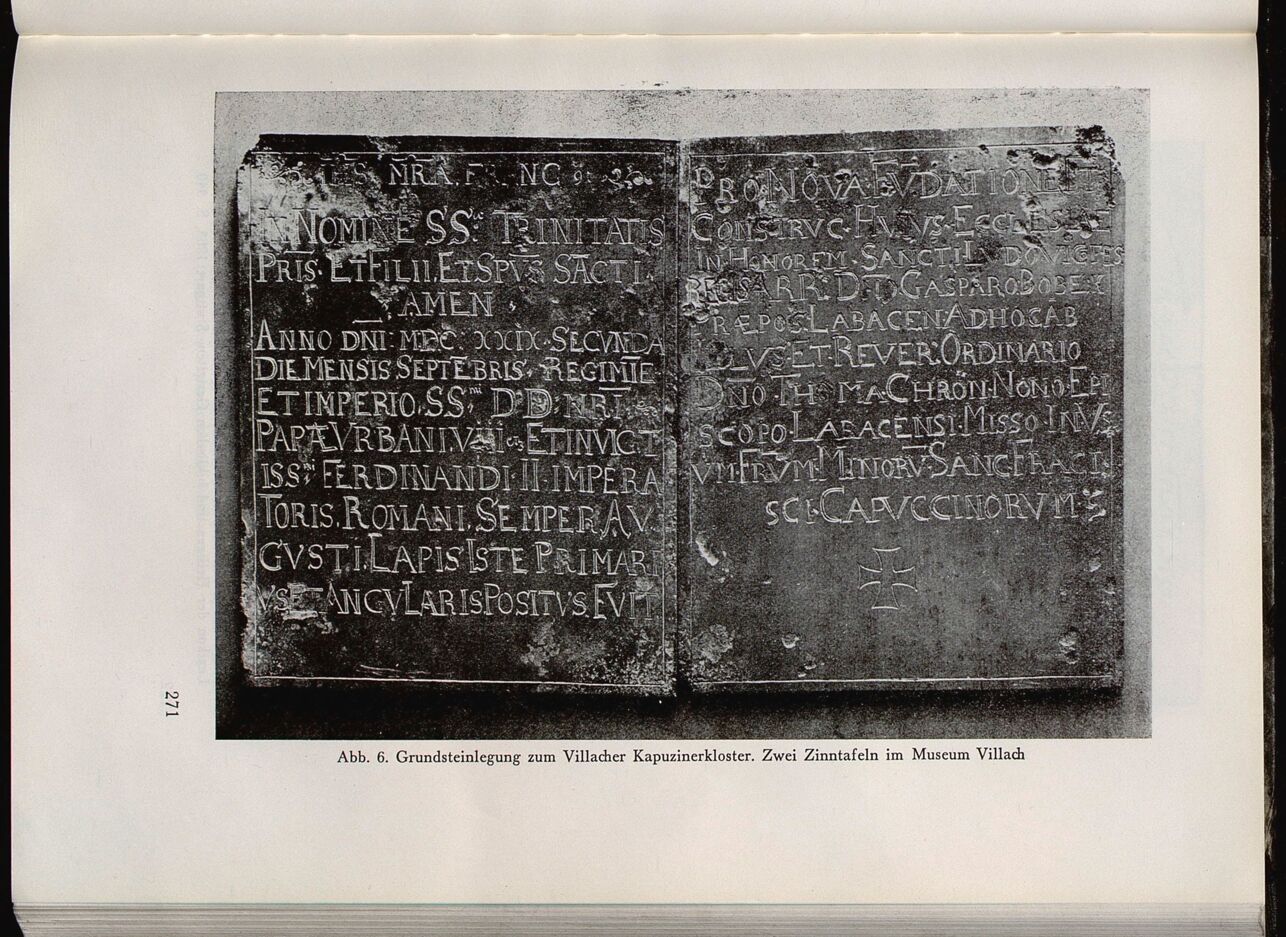 MRA. NC
IN NOMINE SS. TRINITATIS
PRIS. ET FILII. ET SPVS SACTI.
AMEN
ANNO DNI: MDC XXXIX. SECVNDA
DIE MENSIS SEPTEBRIS. REGIMIE
ET IMPERIO. SS.mi D.D. NRI
PAPÆ VRBANI VIII ET INVICT
ISS.mi FERDINANDI II. IMPERA
TORIS. ROMANI. SEMPER AV.
GVSTI. LAPIS ISTE PRIMARI
VS ET ANGVLARIS POSITVS. FVIT
PRO. NOVA. FVDATIONE ET
CONSTRVC. HVIVS. ECCLESIÆ
IN HONOREM. SANCTI. LVDOVICI
REGIS ARR. D. D. GASPARO BOBEK
PRÆPOS. LABACEN AD HOC AB
ET REVER. ORDINARIO
DNO. THOMA. CHRÖN. NONO. EPI
SCOPO LABACENSI. MISSO. IN VS
VM. FRVM. MINORV. SANC. FRACI
SCI. CAPVCCINORVM
271
Abb. 6. Grundsteinlegung zum Villacher Kapuzinerkloster. Zwei Zinntafeln im Museum Villach